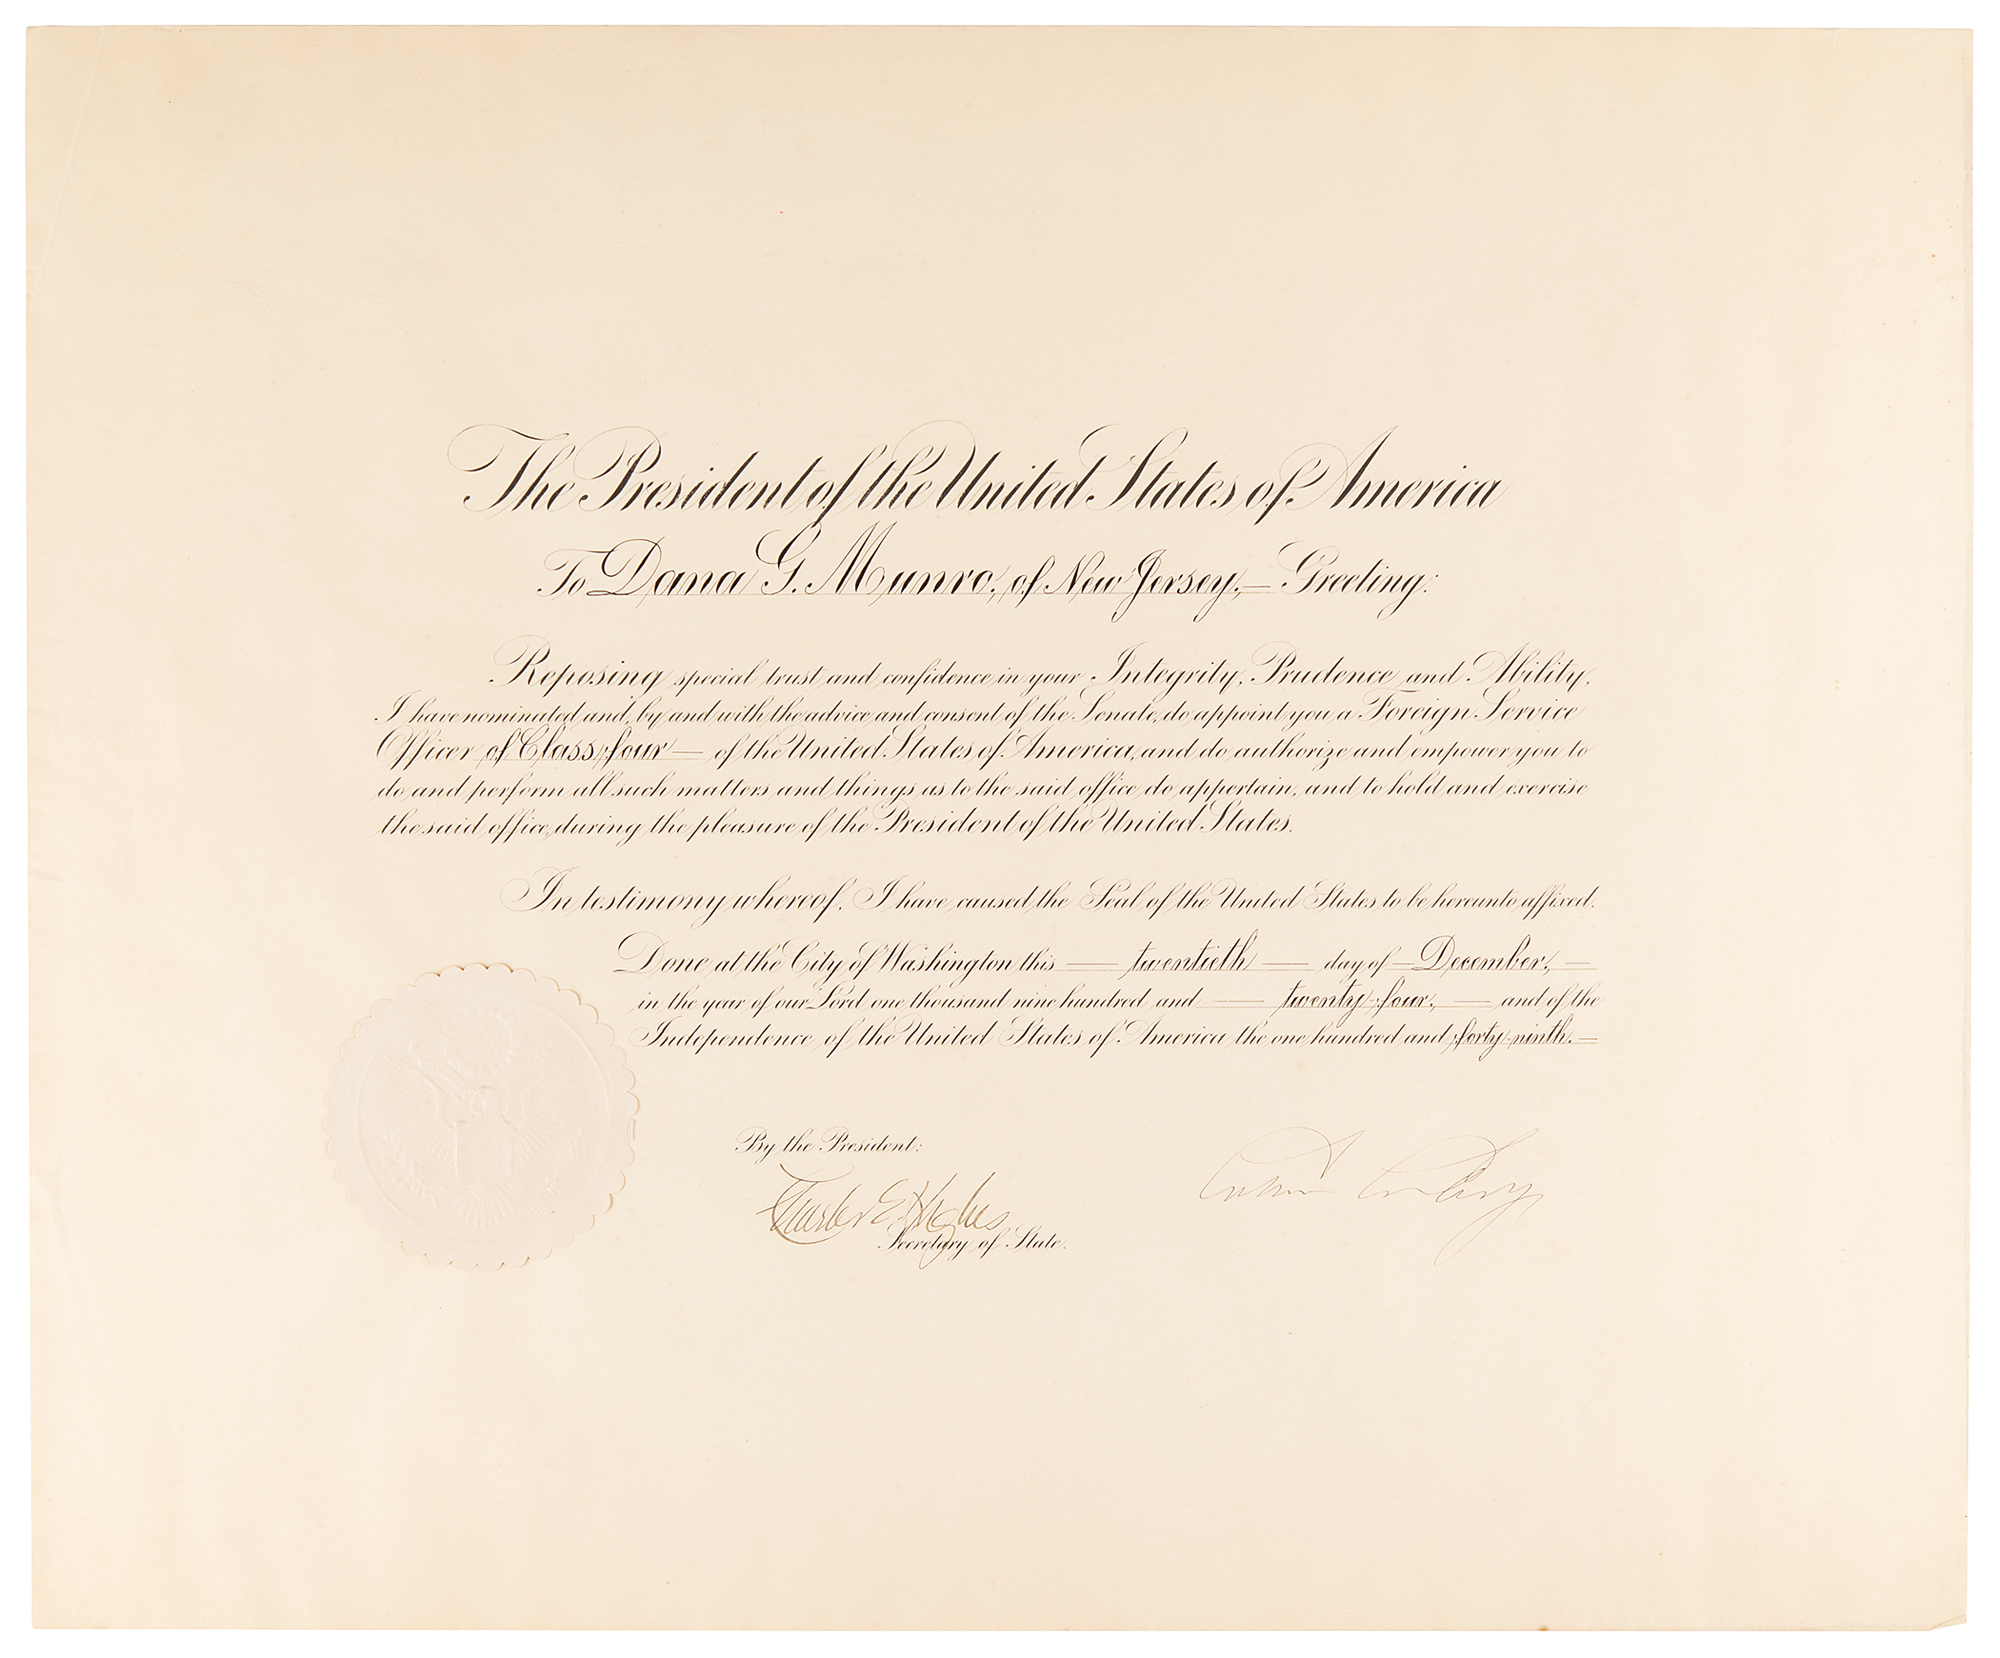 The President of the United States of America
To Dana G. Munro, of New Jersey, — Greeting:
Reposing special trust and confidence in your Integrity, Prudence and Ability,
I have nominated and, by and with the advice and consent of the Senate, do appoint you a Foreign Service
Officer of Class four — of the United States of America, and do authorize and empower you to
do and perform all such matters and things as to the said office do appertain, and to hold and exercise
the said office, during the pleasure of the President of the United States.
In testimony whereof, I have caused the Seal of the United States to be hereunto affixed.
Done at the City of Washington this — twentieth — day of — December, —
in the year of our Lord one thousand nine hundred and — twenty-four, — and of the
Independence of the United States of America the one hundred and forty-ninth. —
By the President:
Calvin Coolidge
Charles E. Hughes
Secretary of State.